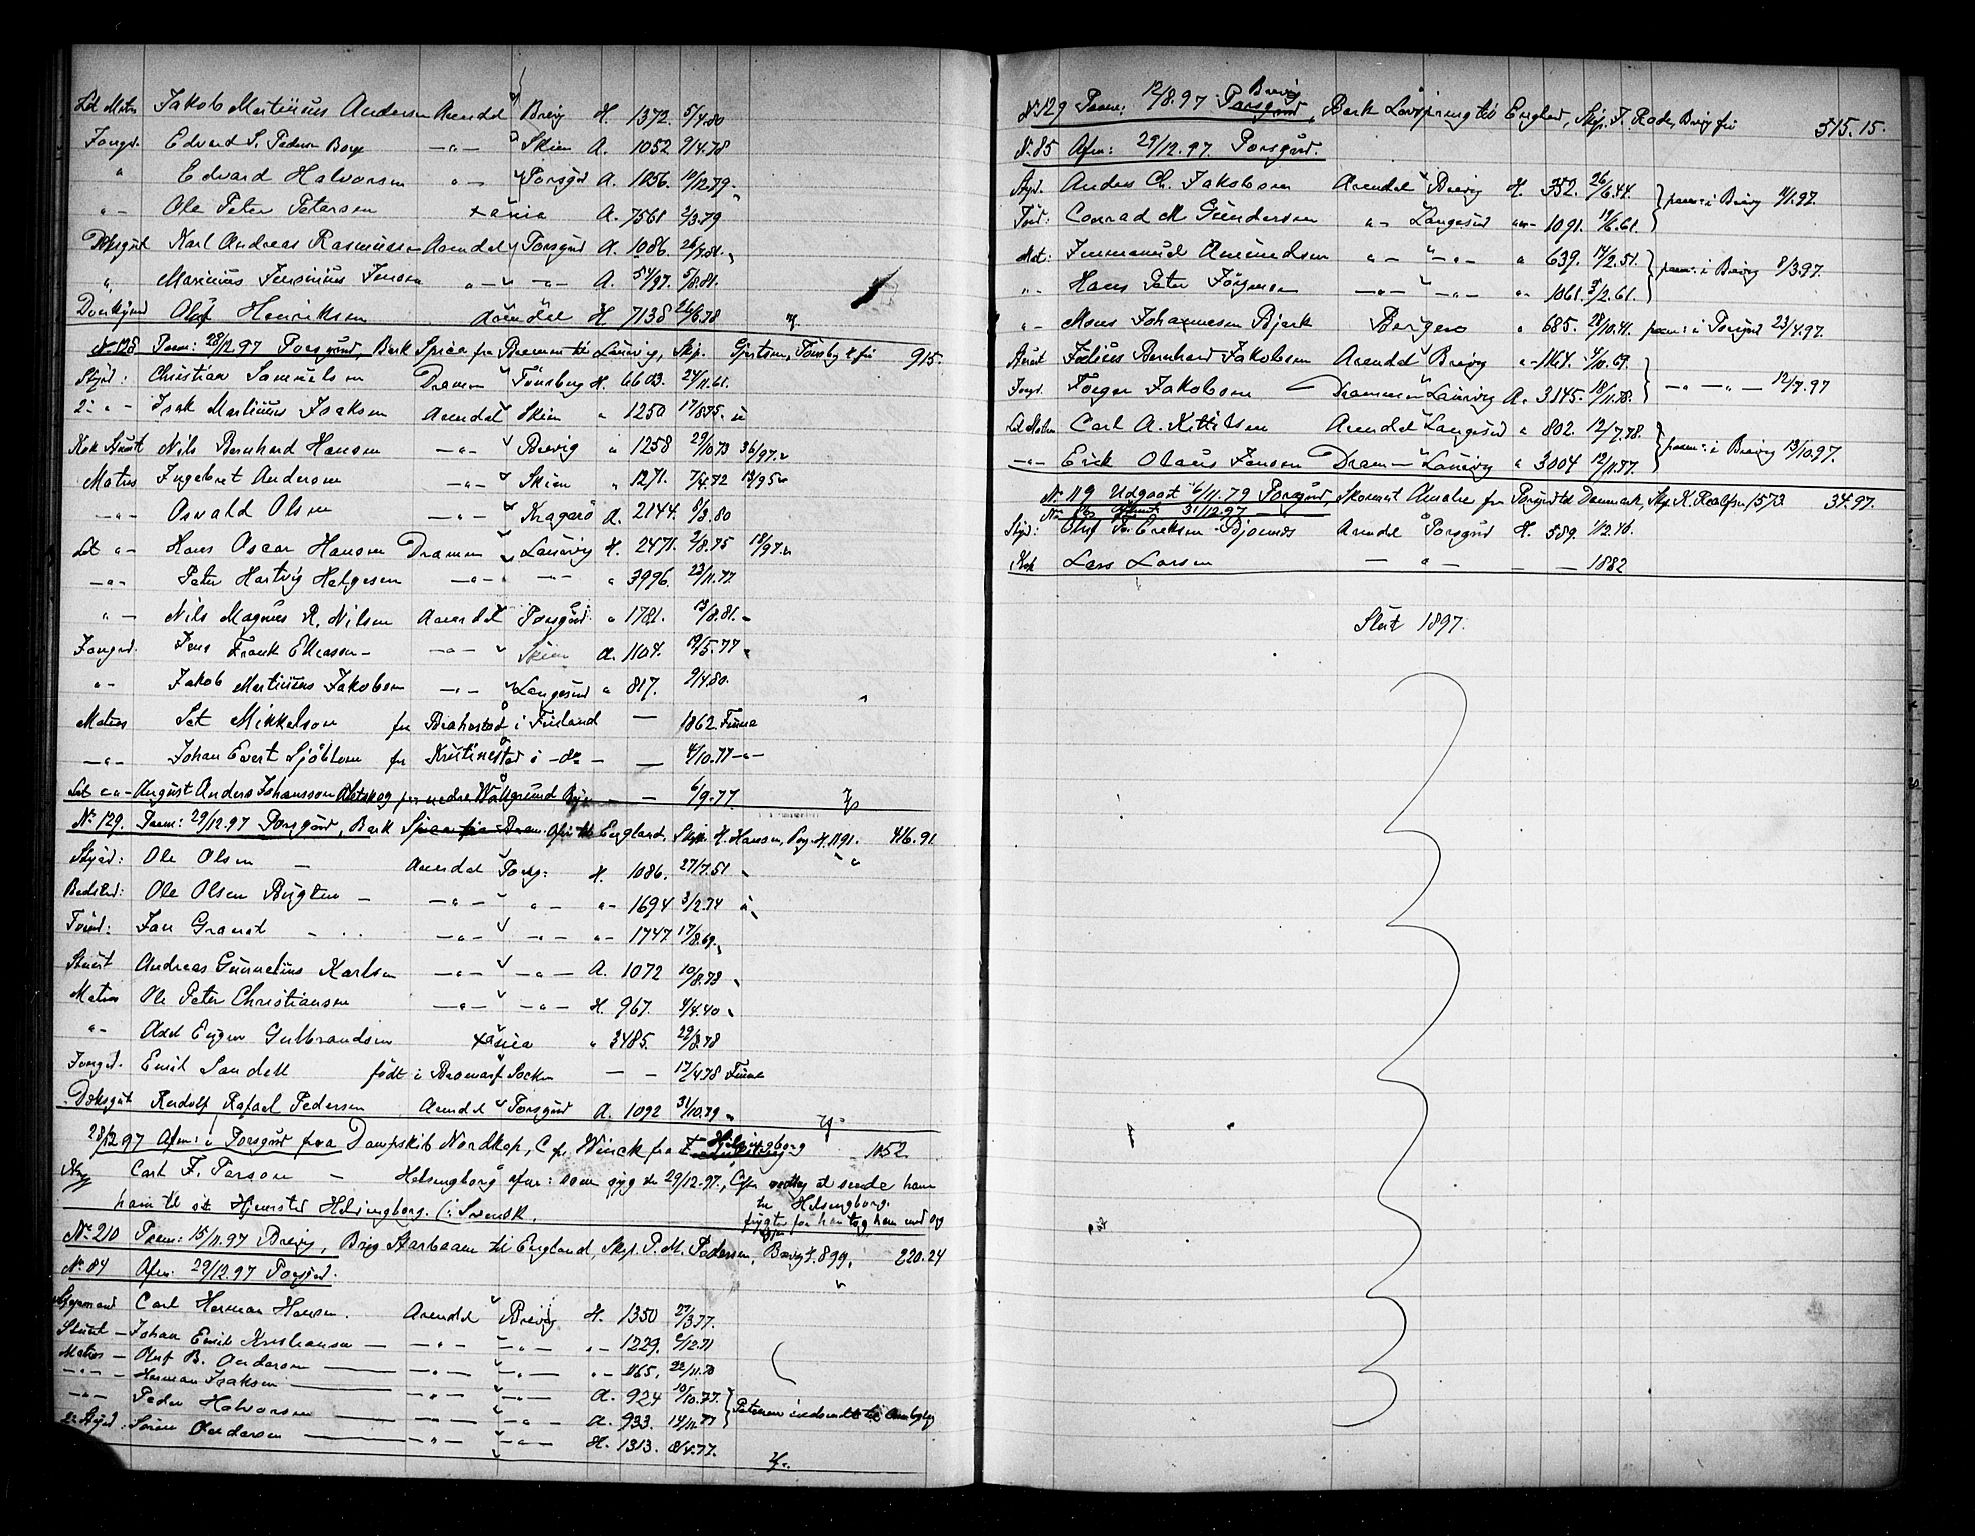 Ld Matr Jakob Martinius Andersen Arendal Brevig H. 1372. 5/4.80
Jongd. Edvard S. Pedersen Borge —„— Skien A. 1052 9/4.78
„ Edvard Halvorsen „— Porsgrd A. 1056. 10/12.79
„— Ole Peter Petersen Xania A. 7568 2/3.79
Dæksgut Karl Andreas Rasmussen Arendal Porsgrd A. 1086. 26/7.81.
„ Marinius Jensinius Jensen „— —„— A. 54/97. 5/8.81.
Donkymd Oluf Henriksen Arendal H. 7138 26/6.78
No 128 Paam: 28/12.97 Porsgrund, Bark Spica fra Bremen til Laurvig, Skp. Gjertsen, Tønsby 915.
Styrd: Christian Samuelsen Dramm Tønsberg H. 6603. 24/11.61.
2 „— Isak Martinius Isaksen Arendal Skien „ 1250 17/8.75.
Kok Stuert Nils Bernhard Hansen —„— Brevig „ 1258 29/10.73 36/97.
Matros Ingebret Andersen —„— Skien „ 1271. 7/4.72 13/95
—„— Osvald Olsen —„— Kragerö A. 2144. 6/3.80
Ld „— Hans Oscar Hansen Dramm Laurvig H. 2471. 2/8.75 18/97.
—„— Peter Hartvig Helgesen —„— —„— „ 3996. 23/11.77.
„— Nils Magnus R. Nilsen Arendal Porsgrd. „ 1781. 13/8.81.
Jongd. Jens Frank Ellefsen —„— Skien A. 1104. 19/5.77
„— Jakob Martinius Jakobsen —„— Langesund „ 817. 9/4.80.
Matros Set Mikkelson fra Brahestad i Finland — 1862 Finne
—„— Johan Evert Sjöblom fra Kristinestad i do — — 4/10.77 —„—
Ld „— August Anders Johansson nedre Wallgrund — — 6/9.77
No 129. Paam: 29/12.97 Porsgrd, Bark til England, Skp. H. Hansen, Porsg. H. 1191. 416.91.
Styrd: Ole Olsen — Arendal Porsg: H. 1086. 27/7.51
Bedsted: Ole Olsen Bugten — —„— „— „— 1694 3/2.74
Tømd: Jan Granat —„— —„— „— 1747 17/8.69.
Stuert Andreas Gunnelius Karlsen —„— —„— A. 1072 10/8.73
Matros Ole Peter Christiansen —„— —„— H. 967. 4/4.40
„— Axel Eugen Gulbrandsen Xania „ 3485. 29/8.78
Jongd. Emil Sandell født i Bromarf Socken — — 17/4.78 Finne
Dæksgut Rudolf Rafael Pedersen Arendal Porsgrd A. 1092 31/10.79
28/12 97 Afm: i Porsgrd fra Dampskib Nordkap, Cpt. Winck fra Helsingborg 1152.
Carl F. Persson — Helsingborg afm: som syg den 29/12.97., Cpt. at sende ham
ham til sit Hjemsted Helsingborg. (: Svensk. til Helsingborg.
for han tog ham med og
No 210 Paam: 15/11.97 Brevig, Brig Haabaaen til England, Skp. P. M. Pedersen, Brevig H. 899. 220.24
No 84 Afm: 29/12.97 Porsgrd.
Styrmand Carl Herman Hansen. Arendal Brevig H. 1350 27/3.77.
Stuert — Johan Emil Kristiansen — —„— —„— „— 1229. 6/12.71
Matros — Oluf B. Andersen — —„— —„— „— 1165. 22/11.70
—„— Herman Isaksen — —„— —„— A. 924 10/10.77.
—„— Peder Halvorsen — —„— —„— A. 933. 14/11.77 Patenen indsendt til
2 Styrd: Søren Andersen — —„— —„— H. 1313. 8/4.77.
No 129 Paam: 12/8.97 Porsgrund Brevig, Bark Løvspring til England, Skp. J. Rode, Brevig fri 515.15.
No 85 Afm: 29/12.97. Porsgrd.
Styd. Anders Ch. Jakobsen Arendal Brevig H. 352. 26/6.44. paam: i Brevig 4/1.97.
Tømd. Conrad M. Gundersen „— Langesund „— 1091. 19/6.61.
Mat: Immanuel Amundsen „— —„— „ 639. 14/2.51. paam: i Brevig 8/3.97.
„— Hans Peter Jörgensen —„— —„— „ 1061. 3/2.61.
„— Mons Johannesen Bjerk Bergen „ 685. 28/10.41. paam: i Porsgrd 23/4.97.
Stuert Julius Bernhard Jakobsen Arendal Brevig „— 1164. 4/10.69.
Jongd. Jörgen Jakobsen Drammen Laurvig A. 3145. 18/11.78. —„— —„— 12/7.97
Ld Matros Carl A. Kittilsen Arendal Langesund „ 802. 12/7.78.
—„— Erik Olaus Jensen Dram— Laurvig „ 3004 12/11.77. paam: i Brevig 13/10.97.
No 119 Udgaat 6/11.79 Porsgrd, Skonnert Amalie fra Porsgrd til Danmark, Skp. K. Roalfsen 1573 34.97.
No 31/12.97 —
Styd: Oluf Eriksen Bjønnes Arendal Porsgrd H. 589. 1/12.46.
Kok Lars Larsen — „ — — — 1882
Slut 1897.